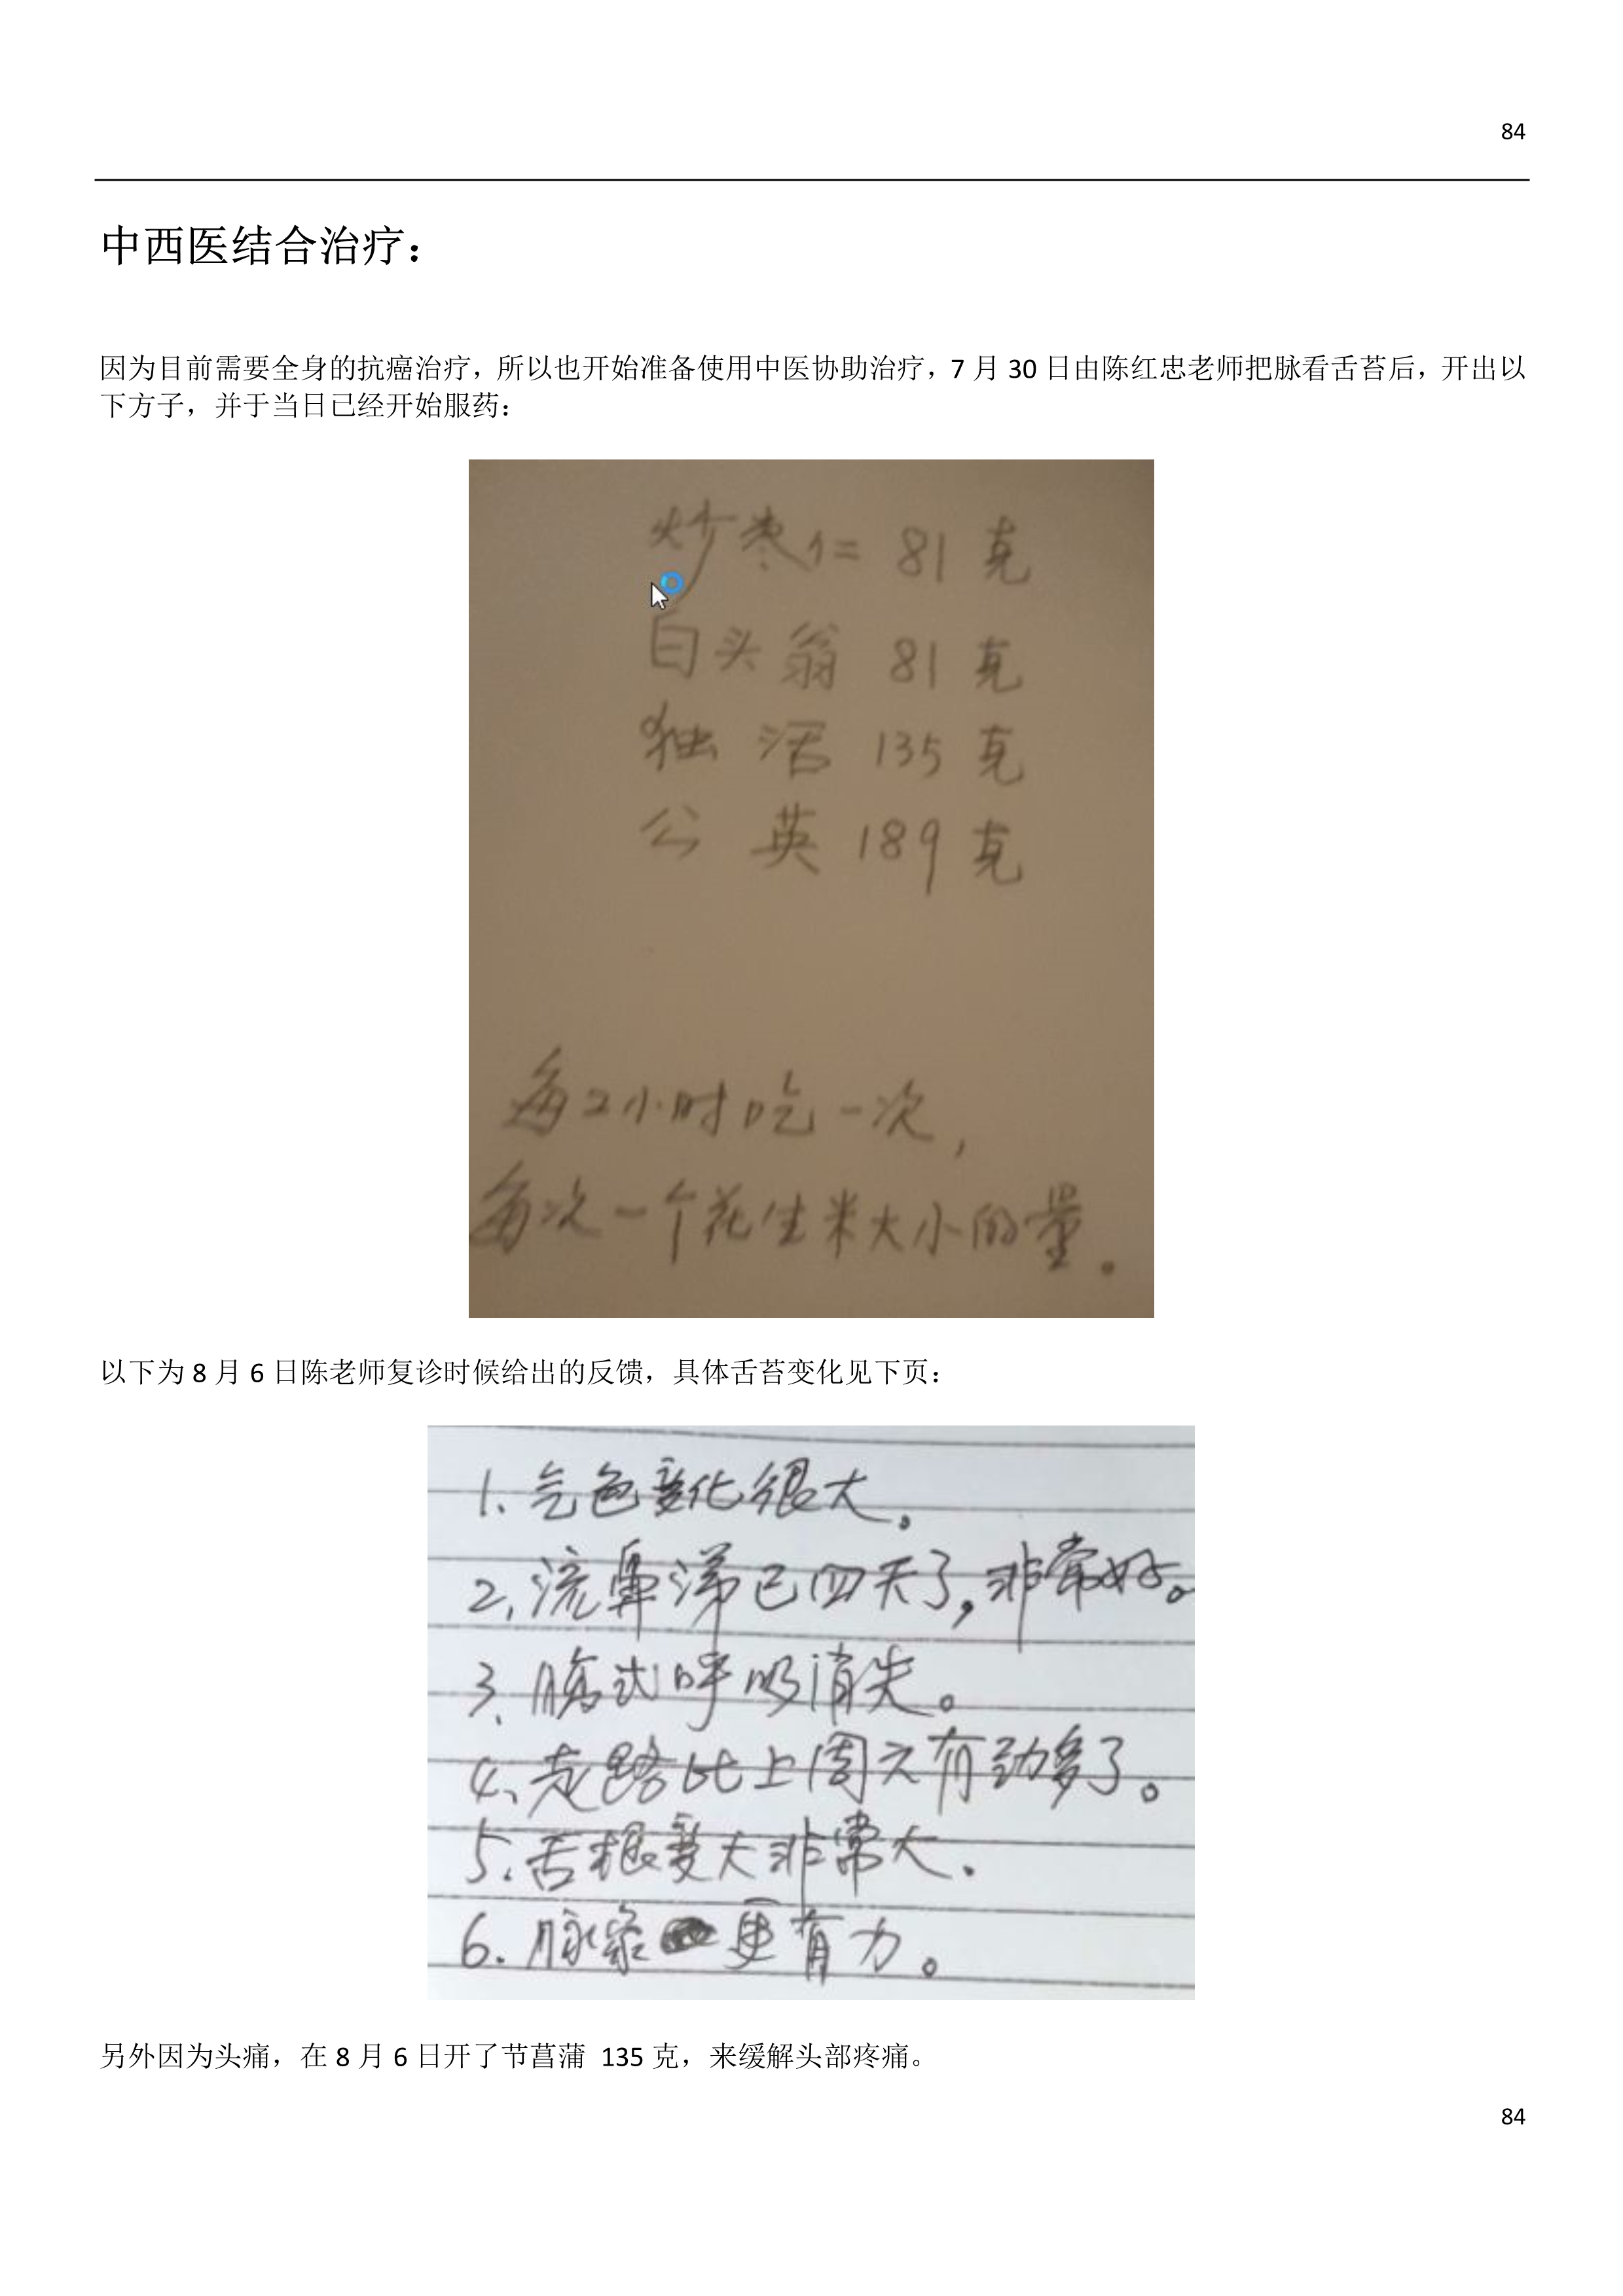 84
中西医结合治疗：
因为目前需要全身的抗癌治疗，所以也开始准备使用中医协助治疗，7 月 30 日由陈红忠老师把脉看舌苔后，开出以
下方子，并于当日已经开始服药：
炒枣仁 81 克
白头翁 81 克
独活 135 克
公英 189 克
每2小时吃一次，
每次一个花生米大小的量。
以下为 8 月 6 日陈老师复诊时候给出的反馈，具体舌苔变化见下页：
1、气色变化很大。
2、流鼻涕已四天了，非常好。
3、腹式呼吸消失。
4、走路比上周六有劲多了。
5.舌根变大非常大.
6.脉象更有力。
另外因为头痛，在 8 月 6 日开了节菖蒲 135 克，来缓解头部疼痛。
84